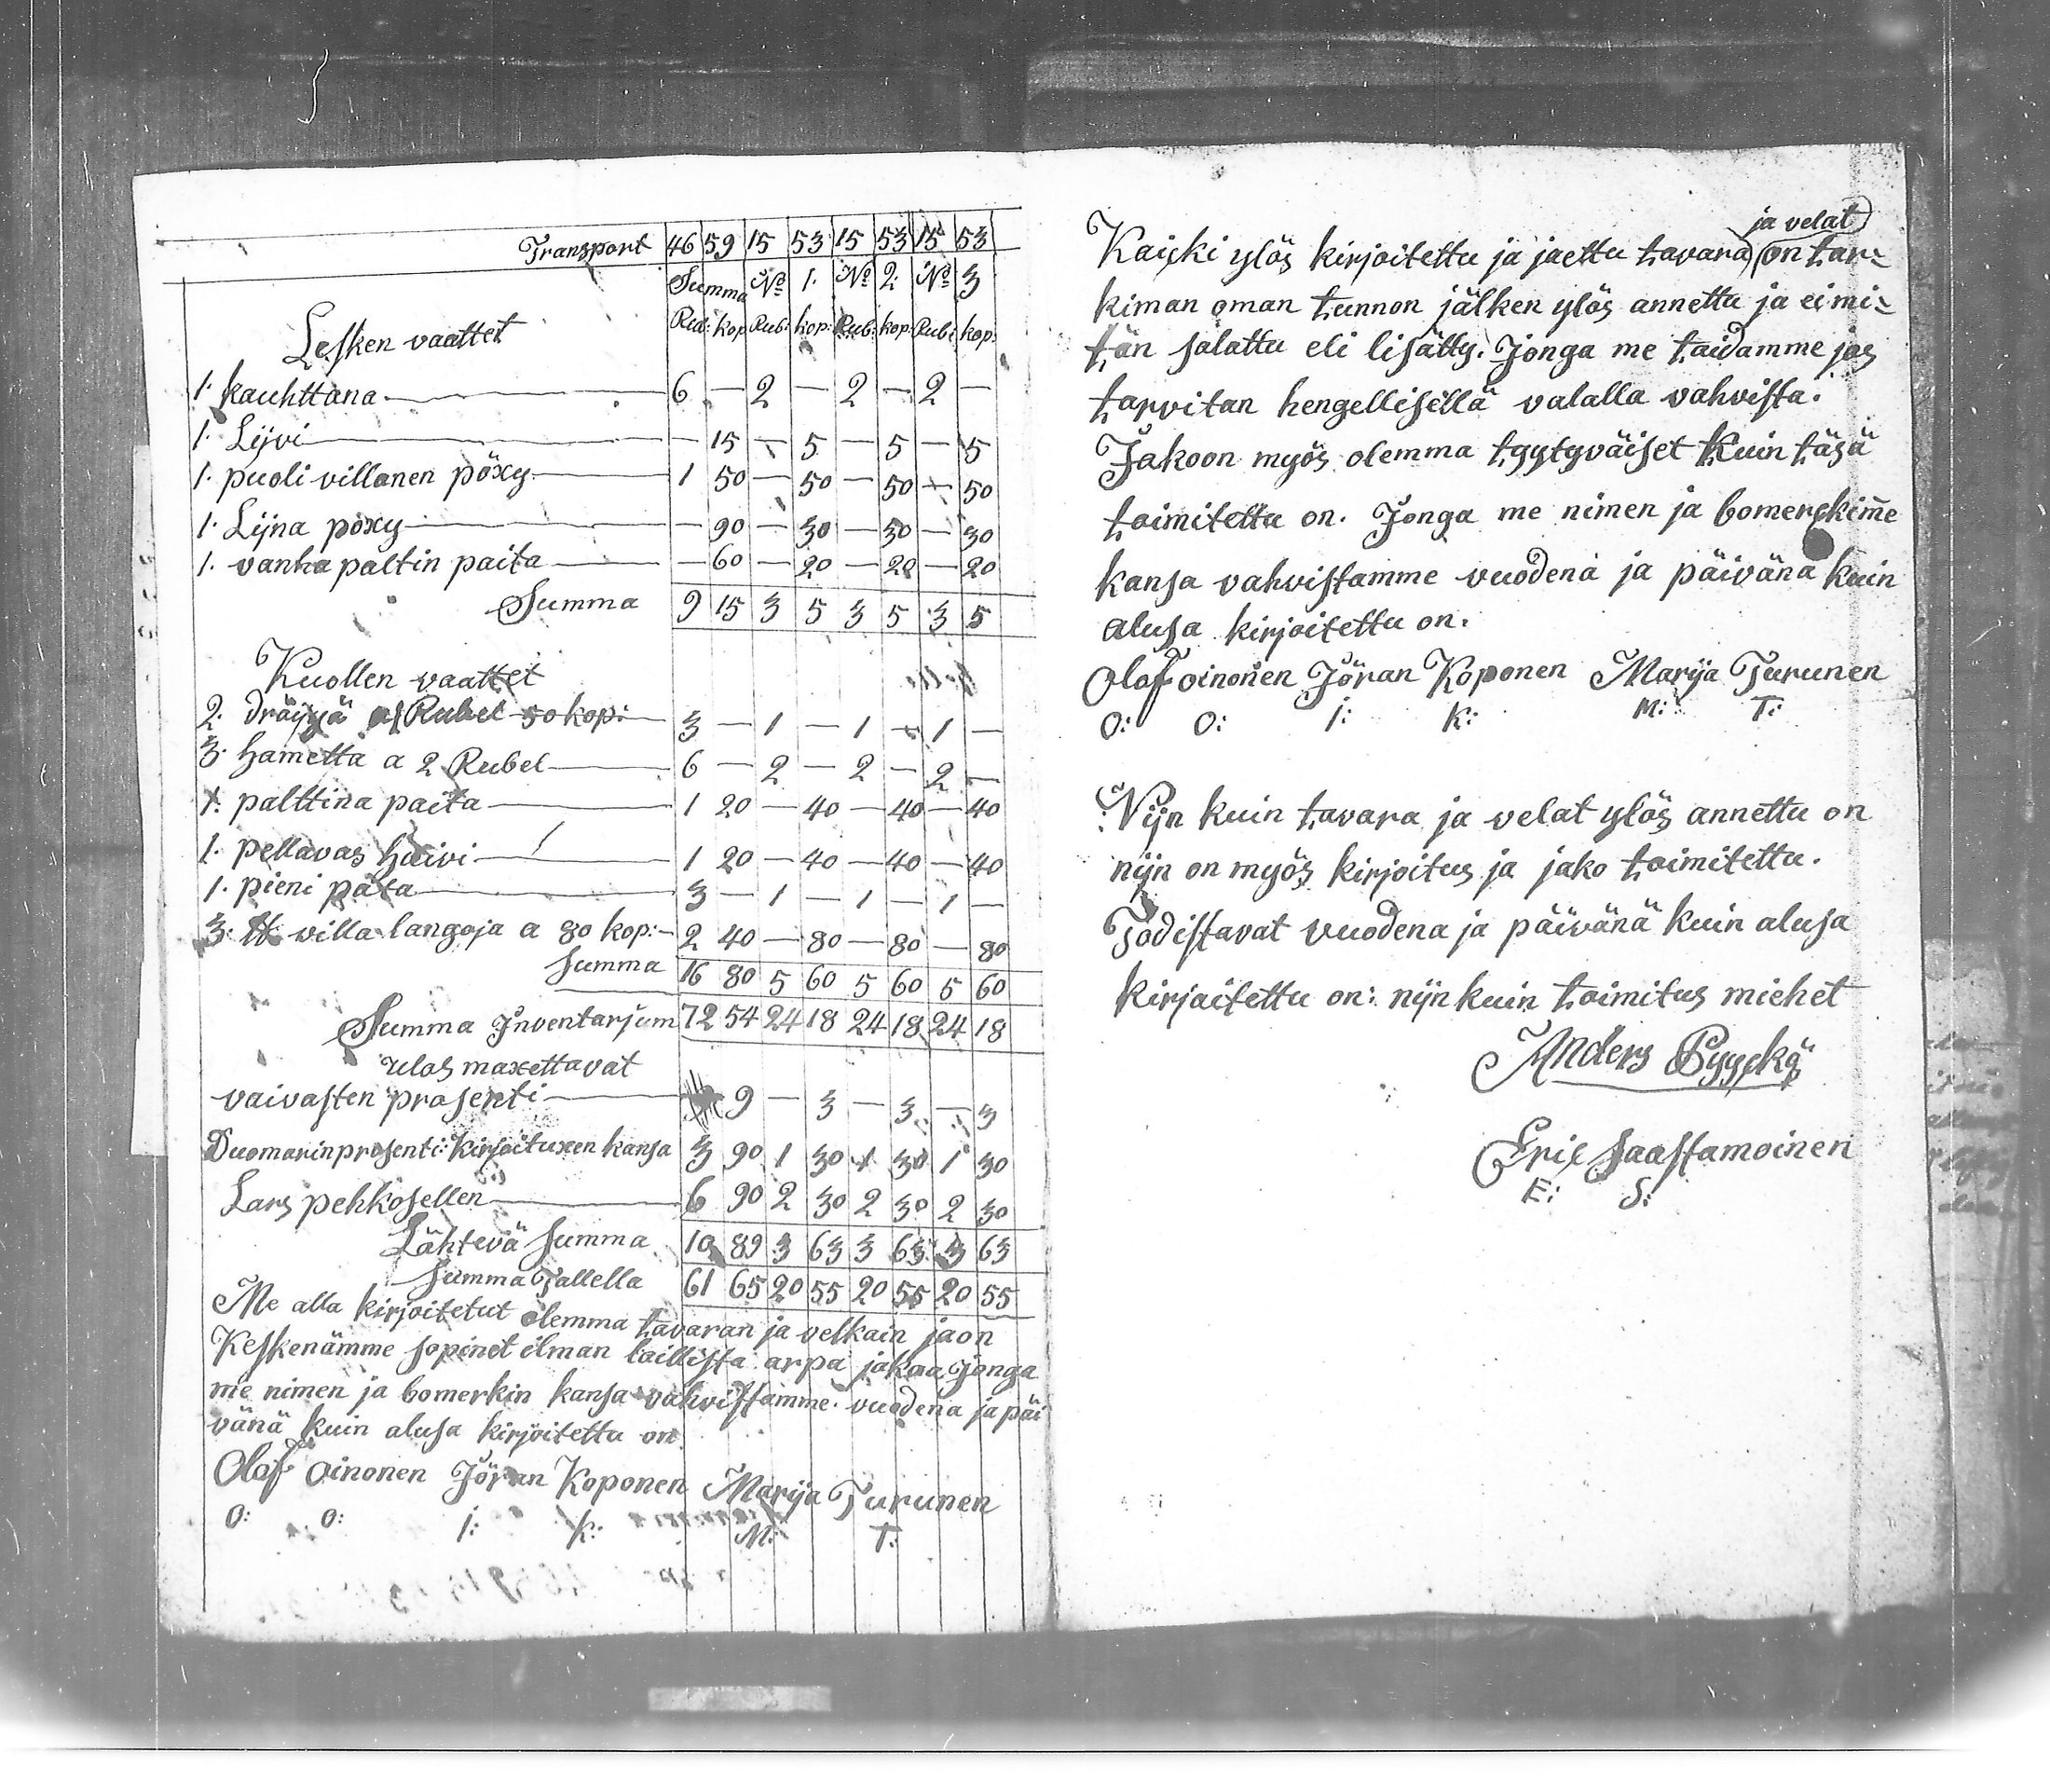 Transport 46 59 15 53 15 53 15 53
Summa No 1. No 2. No 3
Lesken vaattet Rub: kop Rub: kop: Rub: kop: Rub: kop:
1. kauhttana 6 — 2 — 2 — 2 —
1. Lijvi — 15 — 5 — 5 — 5
1. puoli villanen pöxy 1 50 — 50 — 50 — 50
1. Lijna pöxy — 90 — 30 — 30 — 30
1. vanha paltin paita — 60 — 20 — 20 — 20
Summa 9 15 3 5 3 5 3 5
Kuollen vaattet
2. a 1 Rubel 50 kop: 3 — 1 — 1 — 1 —
3. hametta a 2 Rubel 6 — 2 — 2 — 2 —
1. palttina paita 1 20 — 40 — 40 — 40
1. pellavas huivi 1 20 — 40 — 40 — 40
1. pieni pata 3 — 1 — 1 — 1 —
3. ℔ villa langoja a 80 kop: 2 40 — 80 — 80 — 80
Summa 16 80 5 60 5 60 5 60
Summa Inventarjum 72 54 24 18 24 18 24 18
ulos maxettavat
vaivasten prosenti 9 — 3 — 3 — 3
Duomarin prosenti: kirjoituxen kansa 3 90 1 30 1 30 1 30
Lars pehkosellen 6 90 2 30 2 30 2 30
Lähtevä summa 10 89 3 63 3 63 3 63
summa Tallella 61 65 20 55 20 55 20 55
Me alla kirjoitetut olemma tavaran ja velkain jaon
Keskenämme sopinet ilman laillista arpa jakaa jonga
me nimen ja bomerkin kansa vahvistamme. vuodena ja päi
vänä kuin alusa kirjoitettu on.
Olof Oinonen Jöran Koponen Marija Turunen
O: O: J: K: M: T:
ja velat
Kaicki ylös kirjoitettu ja jaettu tavara on tar-
kiman oman tunnon jälken ylös annettu ja ei mi-
tän salattu eli lisätty. Jonga me taidamme jos
tarvitan hengellisellä valalla vahvista.
Jakoon myös olemma tyytyväiset Kuin täsä
toimitettu on. Jonga me nimen ja bomerckim̄e
kansa vahvistamme vuodena ja päivänä kuin
alusa kirjoitettu on.
Olof oinonen Jöran Koponen Marija Turunen
O: O: J: K: M: T:
Nijn kuin tavara ja velat ylös annettu on
nijn on myös kirjoitus ja jako toimitettu.
Todistavat vuodena ja päivänä kuin alusa
kirjoitettu on: nijn kuin toimitus miehet
Anders Pyyckö
Eric Saastamoinen
E: S: